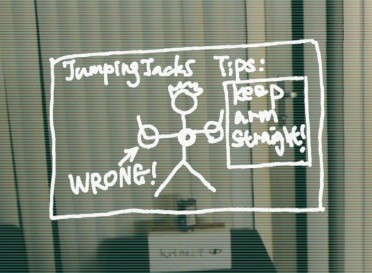 Jumping Jacks Tips:
keep
arm
straight!
WRONG!